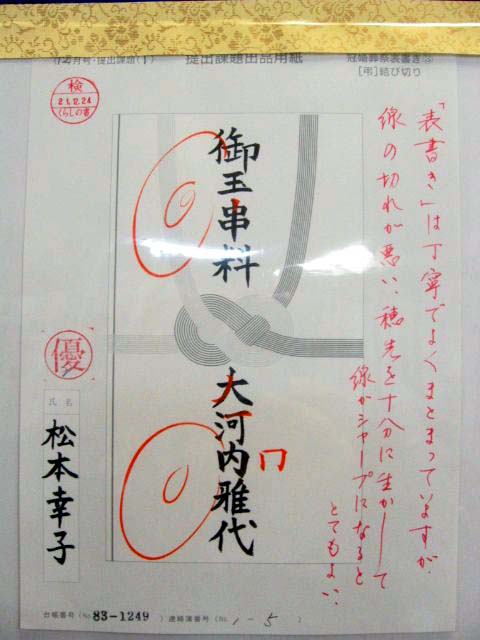 12月号・提出課題(1)
提出課題出品用紙
冠婚葬祭表書き⑬
[弔]結び切り
検
21.12.24
くらしの書
「表書き」は丁寧でよくまとまっていますが、
線の切れが悪い、穂先を十分に生かして
線がシャープになると
とてもよい、
御玉串料
大河内雅代
口
優
氏名
松本幸子
台帳番号(No.83-1249)連絡簿番号(No.1-5)